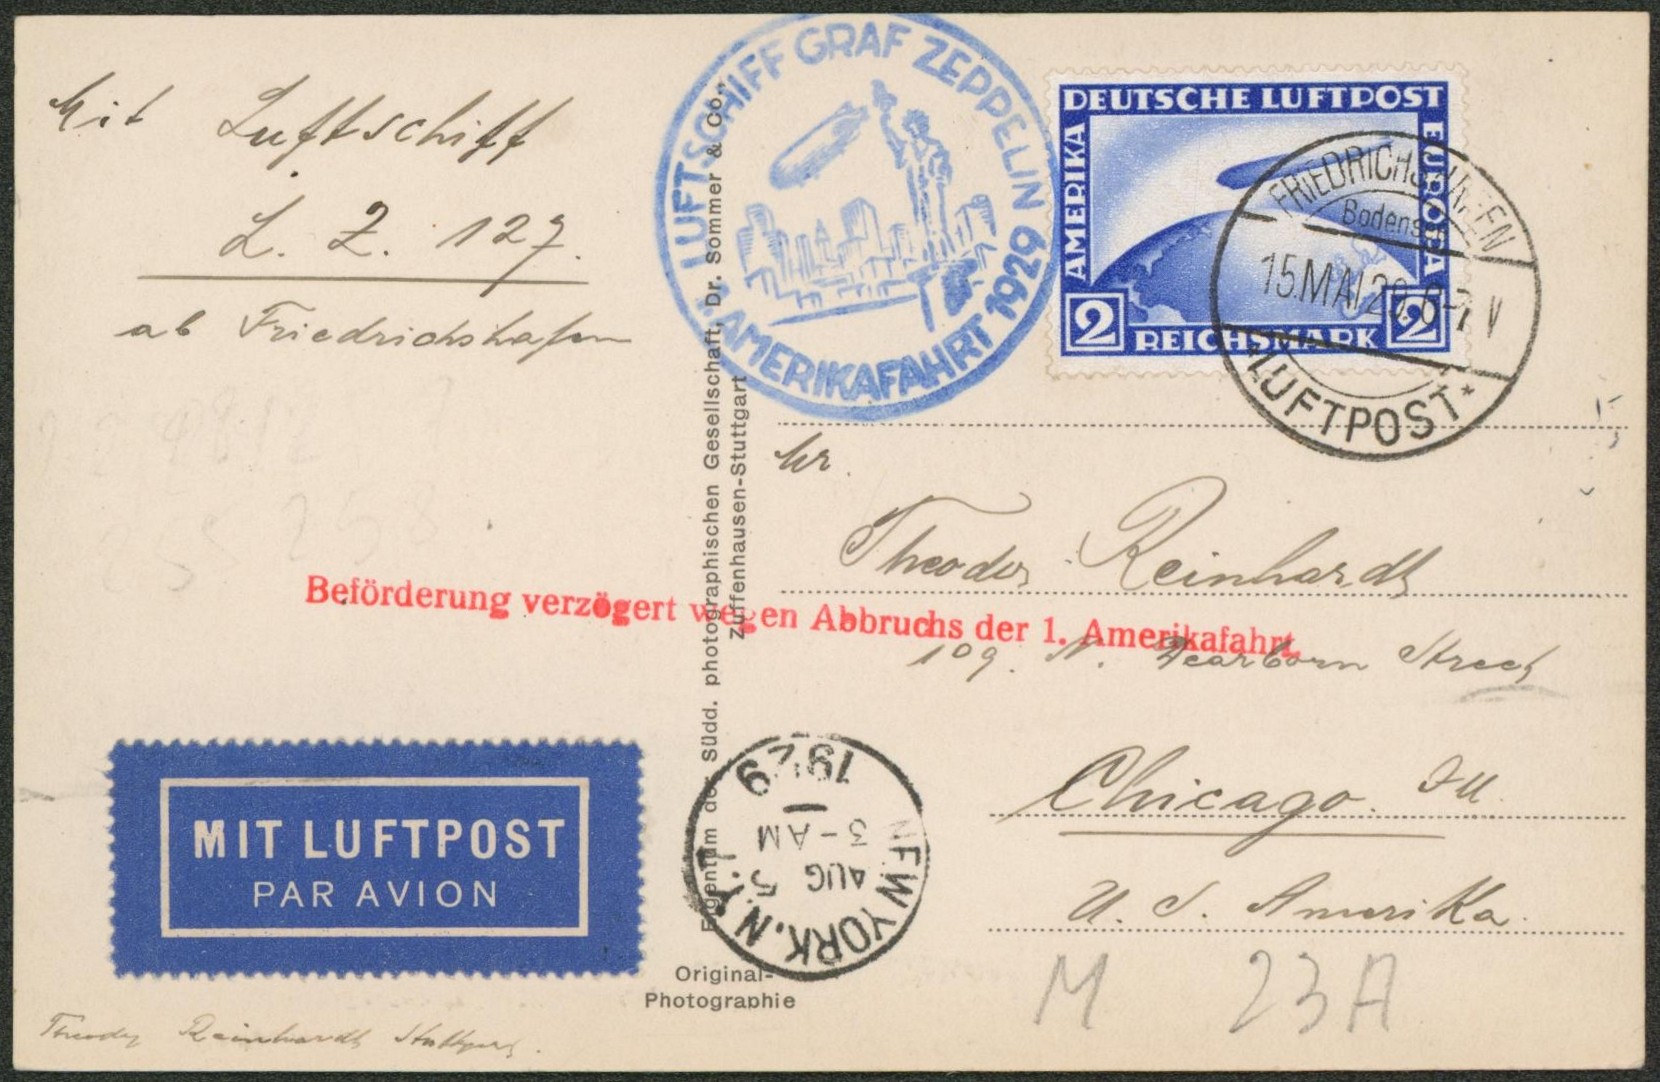 Mit Luftschiff
L. Z. 127.
ab Friedrichshafen
LUFTSCHIFF GRAF ZEPPELIN
1. AMERIKAFAHRT 1929
DEUTSCHE LUFTPOST
AMERIKA
EUROPA
2 REICHSMARK 2
FRIEDRICHSHAFEN
Bodensee
15.MAI.29.6-7 V
LUFTPOST
Hr.
Theodor Reinhardt
109. N. Dearborn Street
Chicago. Ill.
U. S. Amerika.
Beförderung verzögert wegen Abbruchs der 1. Amerikafahrt.
Eigentum der Südd. photographischen Gesellschaft, Dr. Sommer & Co.,
Zuffenhausen-Stuttgart
MIT LUFTPOST
PAR AVION
NEW YORK. N.Y.
AUG 5
3-AM
1929
Original-
Photographie
M 23A
Theodor Reinhardt Stuttgart.